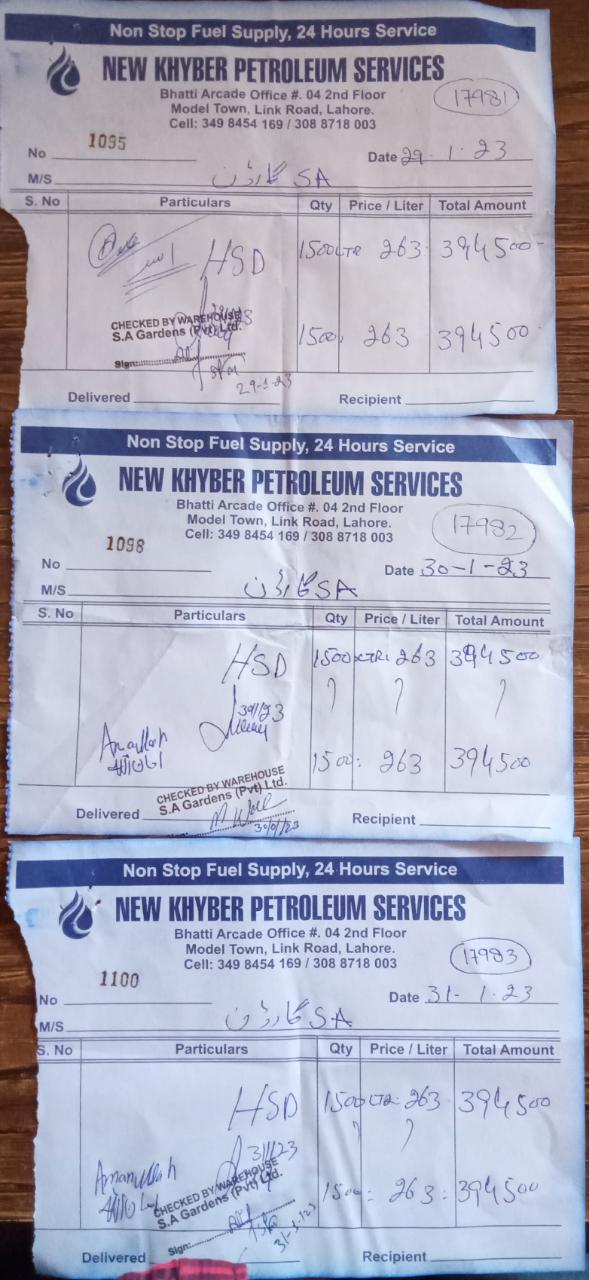 Non Stop Fuel Supply, 24 Hours Service
NEW KHYBER PETROLEUM SERVICES
Bhatti Arcade Office #. 04 2nd Floor
Model Town, Link Road, Lahore.
Cell: 349 8454 169 / 308 8718 003
17981
No 1095 Date 29-1-23
M/S SA گارڈن
S. No Particulars Qty Price / Liter Total Amount
HSD 1500 LTR 263 394500
CHECKED BY WAREHOUSE
S.A Gardens (Pvt) Ltd.
1500 263 394500
Sign:
29-1-23
Delivered Recipient
Non Stop Fuel Supply, 24 Hours Service
NEW KHYBER PETROLEUM SERVICES
Bhatti Arcade Office #. 04 2nd Floor
Model Town, Link Road, Lahore.
Cell: 349 8454 169 / 308 8718 003
17982
No 1098 Date 30-1-23
M/S SA گارڈن
S. No Particulars Qty Price / Liter Total Amount
HSD 1500 LTR: 263 394500
1500: 263 394500
CHECKED BY WAREHOUSE
S.A Gardens (Pvt) Ltd.
Delivered Recipient
30/01/23
Non Stop Fuel Supply, 24 Hours Service
NEW KHYBER PETROLEUM SERVICES
Bhatti Arcade Office #. 04 2nd Floor
Model Town, Link Road, Lahore.
Cell: 349 8454 169 / 308 8718 003
17983
No 1100 Date 31-1-23
M/S SA گارڈن
S. No Particulars Qty Price / Liter Total Amount
HSD 1500 LTR: 263 394500
Amanullah
CHECKED BY WAREHOUSE
S.A Gardens (Pvt) Ltd.
1500: 263: 394500
Sign:
31-1-23
Delivered Recipient